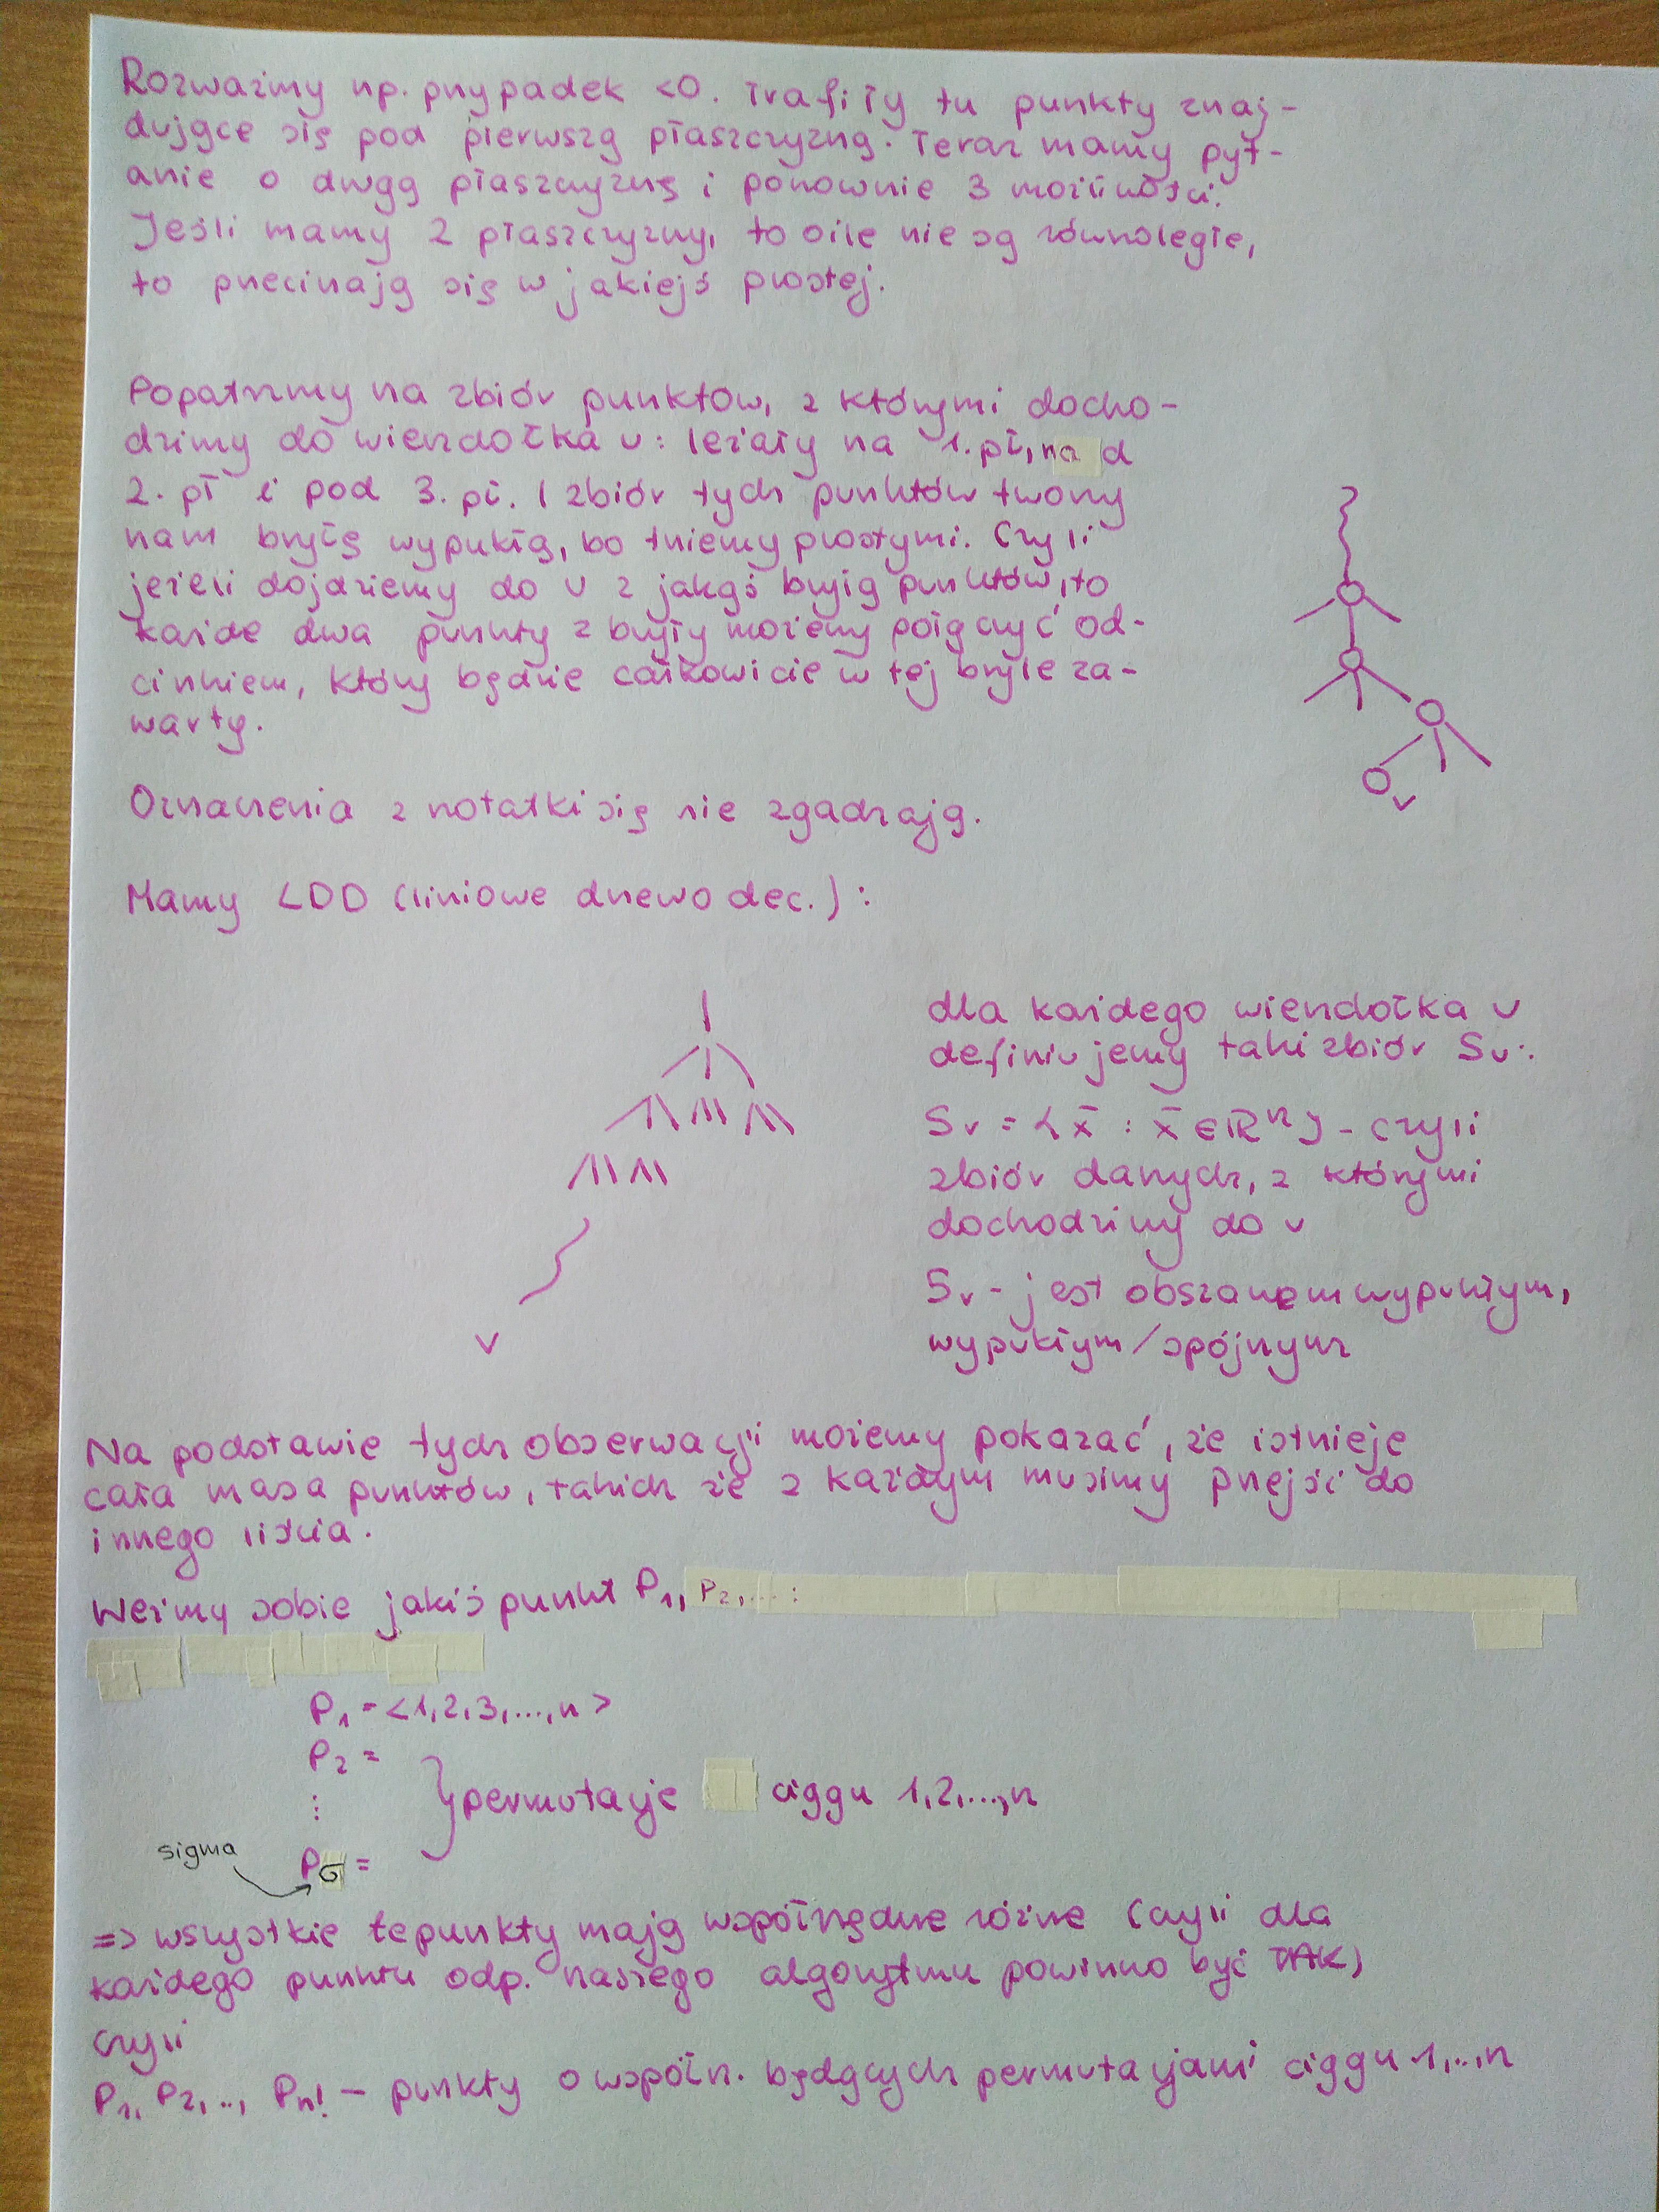 Rozważmy np. przypadek <0. Trafiły tu punkty znaj-
dujące się pod pierwszą płaszczyzną. Teraz mamy pyt-
anie o drugą płaszczyznę i ponownie 3 możliwości.
Jeśli mamy 2 płaszczyzny, to o ile nie są równoległe,
to przecinają się w jakiejś prostej.
Popatrzmy na zbiór punktów, z którymi docho-
dzimy do wierzchołka v: leżały na 1. pł, nad
2. pł i pod 3. pł. I zbiór tych punktów tworzy
nam bryłę wypukłą, bo tniemy prostymi. Czyli
jeżeli dojdziemy do v z jakąś bryłą punktów, to
każde dwa punkty z bryły możemy połączyć od-
cinkiem, który będzie całkowicie w tej bryle za-
warty.
v
Oznaczenia z notatki się nie zgadzają.
Mamy LDD (liniowe drzewo dec.):
v
dla każdego wierzchołka v
definiujemy taki zbiór Sv:
Sv = {x̄ : x̄ ∈ ℝⁿ} - czyli
zbiór danych, z którymi
dochodzimy do v
Sv - jest obszarem wypukłym,
wypukłym/spójnym
Na podstawie tych obserwacji możemy pokazać, że istnieje
cała masa punktów, takich że z każdym musimy przejść do
innego liścia.
Weźmy sobie jakiś punkt P₁, P₂, ... :
P₁ = <1,2,3,...,n>
P₂ =
⋮
} permutacje ciągu 1,2,...,n
sigma
Pσ =
=> wszystkie te punkty mają współrzędne różne (czyli dla
każdego punktu odp. naszego algorytmu powinno być TAK)
czyli
P₁, P₂, .., Pn! – punkty o współrz. będących permutacjami ciągu 1,..,n